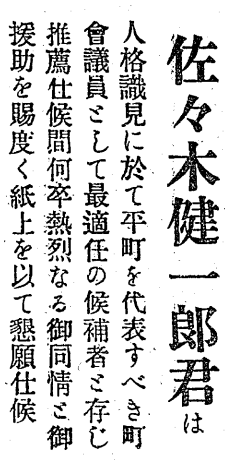 佐々木健一郎君は
人格識見に於て平町を代表すべき町
會議員として最適任の候補者と存じ
推薦仕候間何卒熱烈なる御同情と御
援助を賜度く紙上を以て懇願仕候